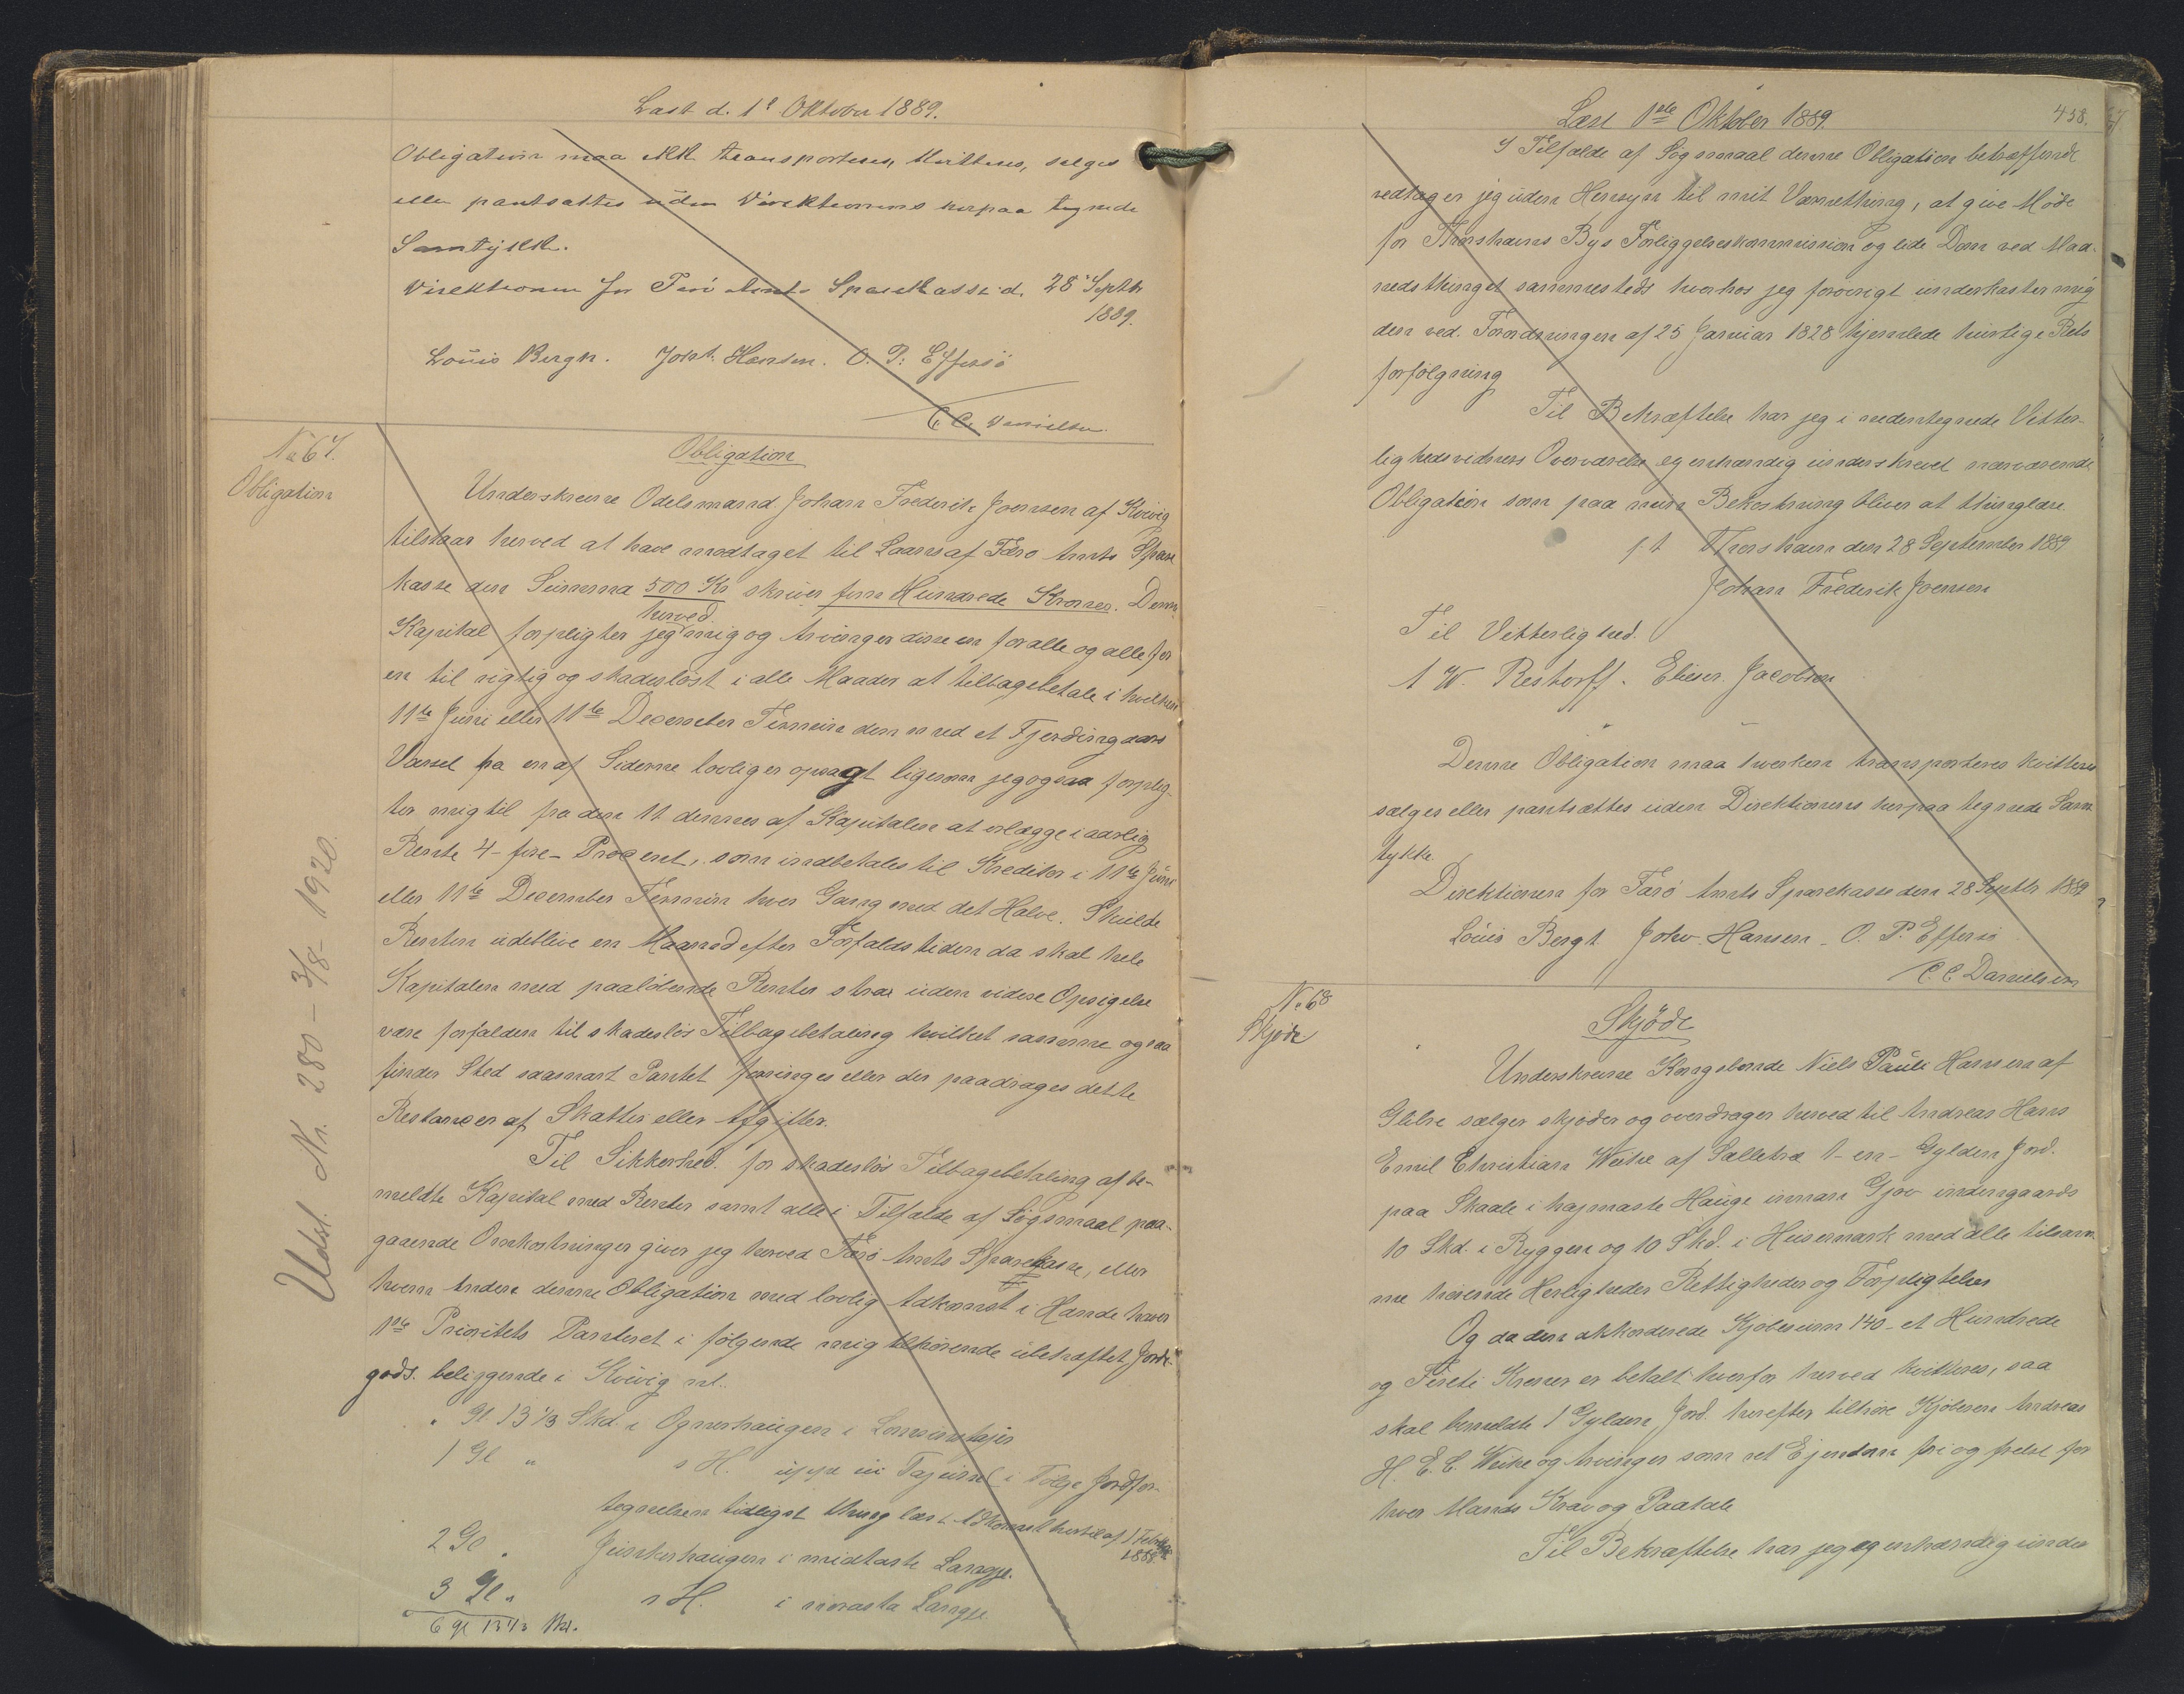 Læst d. 1e Oktober 1889.
Obligation maa ikke transporteres, kvitteres, sælges
eller pantsættes uden Direktionens herpaa tegnede
Samtykke.
Direktionen for Færø Amts Sparekasse d. 28 Septbr
1889.
Louis Bergh. Johs. Hansen. O. P. Effersø
C. C. Danielsen.
No 67.
Obligation
Obligation
Underskrevne Odelsmand Johan Frederik Joensen af Kvivig
tilstaar herved at have modtaget til Laans af Færø Amts Spare
kasse den Summa 500 Kr skriver fem Hundrede Kroner. Denne
herved
Kapital forpligter jeg mig og Arvinger disse en for alle og alle for
en til rigtig og skadesløst i alle Maader at tilbagebetale i hvilken
11te Juni eller 11te December Termin den med et Fjerdingaars
Varsel fra en af Siderne lovlig er opsagt ligesom jeg ogsaa forplig-
ter mig til fra den 11 dennes af Kapitalen at erlægge i aarlig
Rente 4 - fire - Procent, som indbetales til Kreditor i 11te Juni
eller 11te December Termin hver Gang med det Halve. Skulde
Renten udeblive en Maaned efter Forfaldstiden da skal hele
Kapitalen med paaløbende Renter strax uden videre Opsigelse
være forfalden til skadesløs Tilbagebetaling hvilket samme ogsaa
finder Sted saasnart Pantet forringes eller der paadrages dette
Restancer af Skatter eller Afgifter.
Til Sikkerhed for skadesløs Tilbagebetaling af be-
meldte Kapital med Renter samt alle i Tilfælde af Søgsmaal paa-
gaaende Omkostninger giver jeg herved Færø Amts Sparekasse, eller
hvem Anden denne Obligation med lovlig Adkomst i Hænde haver
1ste Prioritets Panteret i følgende mig tilhørende ubehæftet Jorde-
gods. beliggende i Kvivig nl.
" Gl 13 1/3 Skd. i Ognerhaugen i
1 Gl " s H. uppe ui i Følge Jordfor-
tegnelsen tidligst thinglæst Adkomst hertil af 1 Febr
1888
2 Gl " Junkerhaugen i midtaste Lange.
3 Gl " s H. i Lange
6 Gl 13 1/3 Skd.
Udsl. Nr. 280 - 3/8 - 1920.
Læst 1ste Oktober 1889.
458.
I Tilfælde af Søgsmaal denne Obligation betræffende
vedtager jeg uden Hensyn til mit Værnething, at give Møde
for Thorshavns Bys Forligelseskommission og lide Dom ved Maa-
nedsthinget sammesteds hvorhos jeg forøvrigt underkaster mig
den ved Forordningen af 25 Januar 1828 hjemlede hurtige Rets
forfølgning
Til Bekræftelse har jeg i nedentegnede Vitter-
lighedsvidners Overværelse egenhændig underskrevet nærværende
Obligation som paa min Bekostning bliver at thinglæse
p.t. Thorshavn den 28 September 1889
Johan Frederik Joensen
Til Vitterlighed.
A W. Restorff. Elieser Jacobsen
Denne Obligation maa hverken transporteres kvitteres
sælges eller pantsættes uden Direktionens herpaa tegnede Sam
tykke
Direktionen for Færø Amts Sparekasse den 28 Septbr 1889
Louis Bergh Johs. Hansen - O. P. Effersø
C. C. Danielsen
No 68
Skjøde
Skjøde
Underskrevne Kongsbonde Niels Pauli Hansen af
Glibre sælger skjøder og overdrager herved til Andreas Hans
Emil Christian Weihe af Selletræ 1 - en - Gylden Jord.
paa Skaale i hajmaste Hauge innan Gjov indengaards
10 Skd. i Ryggen og 10 Skd. i Husemark med alle tilsam
me hørende Herligheder Rettigheder og Forpligtelser
Og da den akkorderede Kjøbesum 140 - et Hundrede
og Fireti Kroner er betalt hvorfor herved kvitteres, saa
skal bemeldte 1 Gylden Jord. herefter tilhøre Kjøberen Andreas
H. E. C. Weihe og Arvinger som ret Ejendom fri og frelst for
hver Mands Krav og Paatale
Til Bekræftelse har jeg egenhændig under